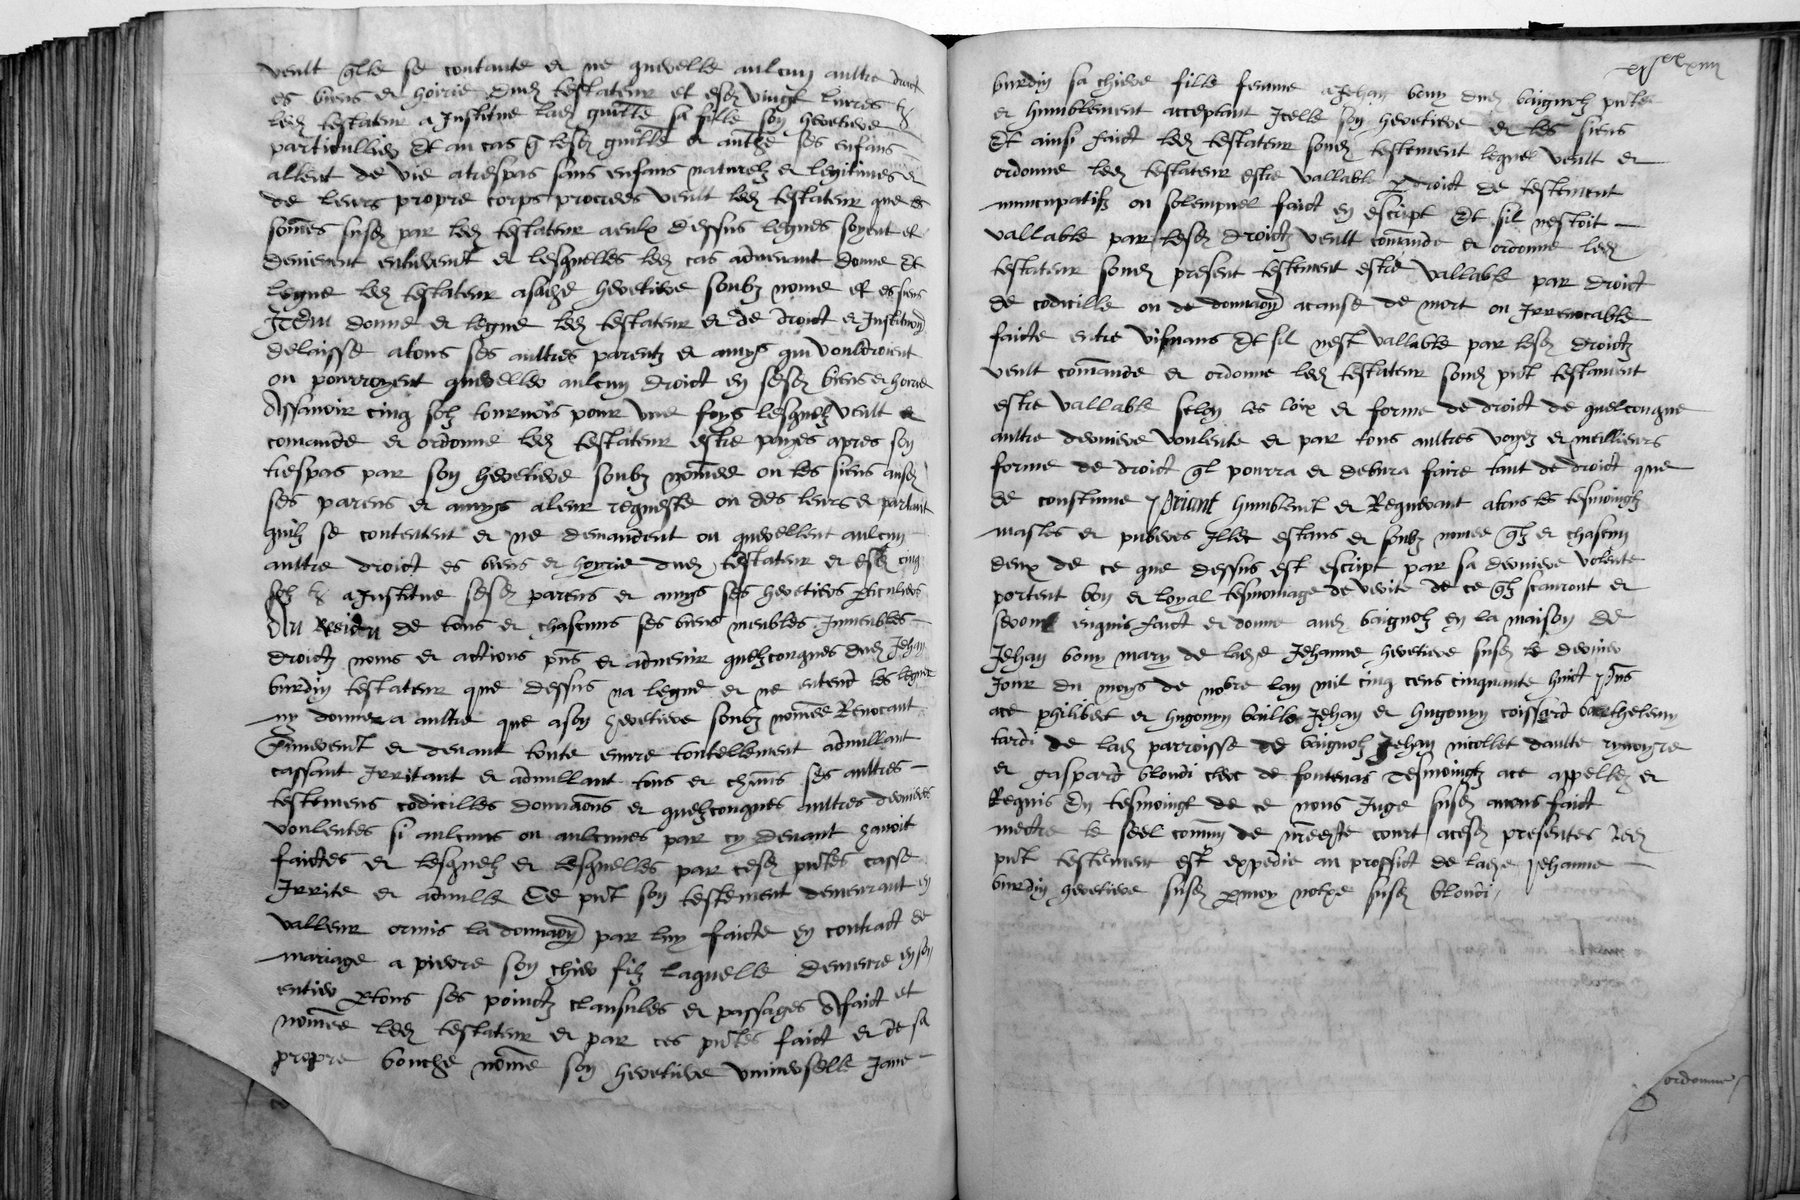 veult qlle se contante et ne querelle aulcun aultre droict
es biens et hoirie dud testateur et esd vingt livres
led testateur a Institue lad guitte sa fille son heretiere
particulliere Et au cas q lesd et anthe ses enfans
allent de vie a trespas sans enfans naturelz et legitimes et
de leurs propre corps procrees veult led testateur que les
somes susd par led testateur a eulx dessus legues soyent et
deniennent entieremt et lesquelles led cas advenant donne et
legue led testateur a sad heretiere soubz nomee et es siens
Item donne et legue led testateur et de droict et Institution
delaisse a tous ses aultres parentz et amys qui vouldroient
ou pourroyent quereller aulcun droict en sesd biens et hoirie
Assavoir cinq solz tournois pour une foys lesquelz veult et
comande et ordonne led testateur estre payes apres son
trespas par son heretiere soubz nomee ou les siens ausd
ses parens et amys a leur requeste ou des leurs et partant
quilz se contentent et ne demandent ou querellent aulcun
aultre droict es biens et hoyrie dud testateur et esd cinq
solz a Institue sesd parens et amys ses heretiers pticuliers
Au Residu de tous et chascuns ses biens meubles Inmeubles
droictz noms et actions pns et advenir quelzconques dud Jehan
burdin testateur que dessus na legue et ne entend les leguer
ny donner a aultre que a son heretiere soubz nomee Revocant
Premieremt et devant toute euvre toutellement adnullant
cassant Irritant et adnullant tous et chuns ses aultres
testemens codicilles donnaons et quelzconques aultres dernieres
voulentes si aulcuns ou aulcunes par cy devant avoit
faictes et lesquelz et lesquelles par cesd pntes casse
Irrite et adnulle Ce pnt son testement demeurant en
valleur ormis la donnaon par luy faicte en contract de
mariage a pierre son chier filz laquelle demeure en son
entier et tous ses poinctz clausules et passages A faict et
nomee led testateur et par ces pntes faict et de sa
propre bouche nome son heretiere universelle Jane
burdin sa chiere fille femme a Jehan bony dud baignolz pnte
et humblement acceptant Icelle son heretiere et les siens
Et ainsi faict led testateur soned testement lequel veult et
ordonne led testateur estre vallable p droict de testement
nuncupatifz ou solempnel faict en escript Et sil nestoit
vallable par lesd droictz veult comande et ordonne led
testateur soned present testement estre vallable par droict
de codicille ou de donnaon a cause de mort ou Irrevocable
faicte entre vifvans Et sil nest vallable par lesd droictz
veult comande et ordonne led testateur soned pnt testament
estre vallable selon les loix et forme de droict de quelconque
aultre derniere voulente et par tous aultres voyes et meillieurs
forme de droict ql pourra et debvra faire tant de droict que
de coustume Priant humblemt et Requerant a tous les tesmoingtz
masles et puberes Illec estans et soubz nomee qlz et chascun
deux de ce que dessus est escript par sa derniere volente
portent bon et loyal tesmoinage de verite de ce qlz scauront et
seront enquis faict et donne aud baignolz en la maison de
Jehan bony mary de lade Jehanne heretiere susd le dernier
Jour du moys de nobre lan mil cinq cens cinquante huict Pns
ace philibert et hugonin baille Jehan et hugonin coissard barthelemy
tardi de lad parroisse de baignolz Jehan nicollet daulte
et gaspard blondi clerc de fontenas Tesmoingtz ace appellez et
Requis En tesmoingt de ce nous Juge susd avons faict
mectre le seel comun de nreeste court a cesd presentes
pnt testement est expedie au proffict de lade Jehanne
burdin heretiere susd p moy notre susd blondi
ordonne